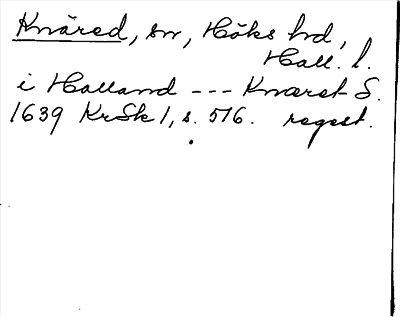 Knäred, sn, Höks hd,
Hall. l.
i Halland --- Knæret S.
1639 KrSk 1, s. 516. regest.